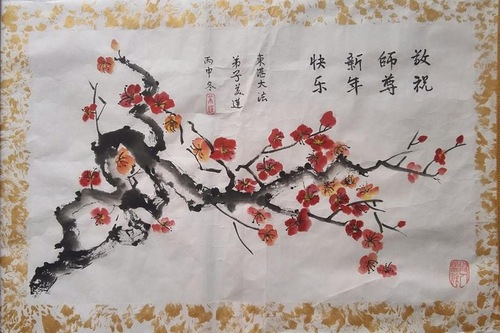 敬祝
師尊
新年
快乐
東港大法
弟子善道
丙申冬